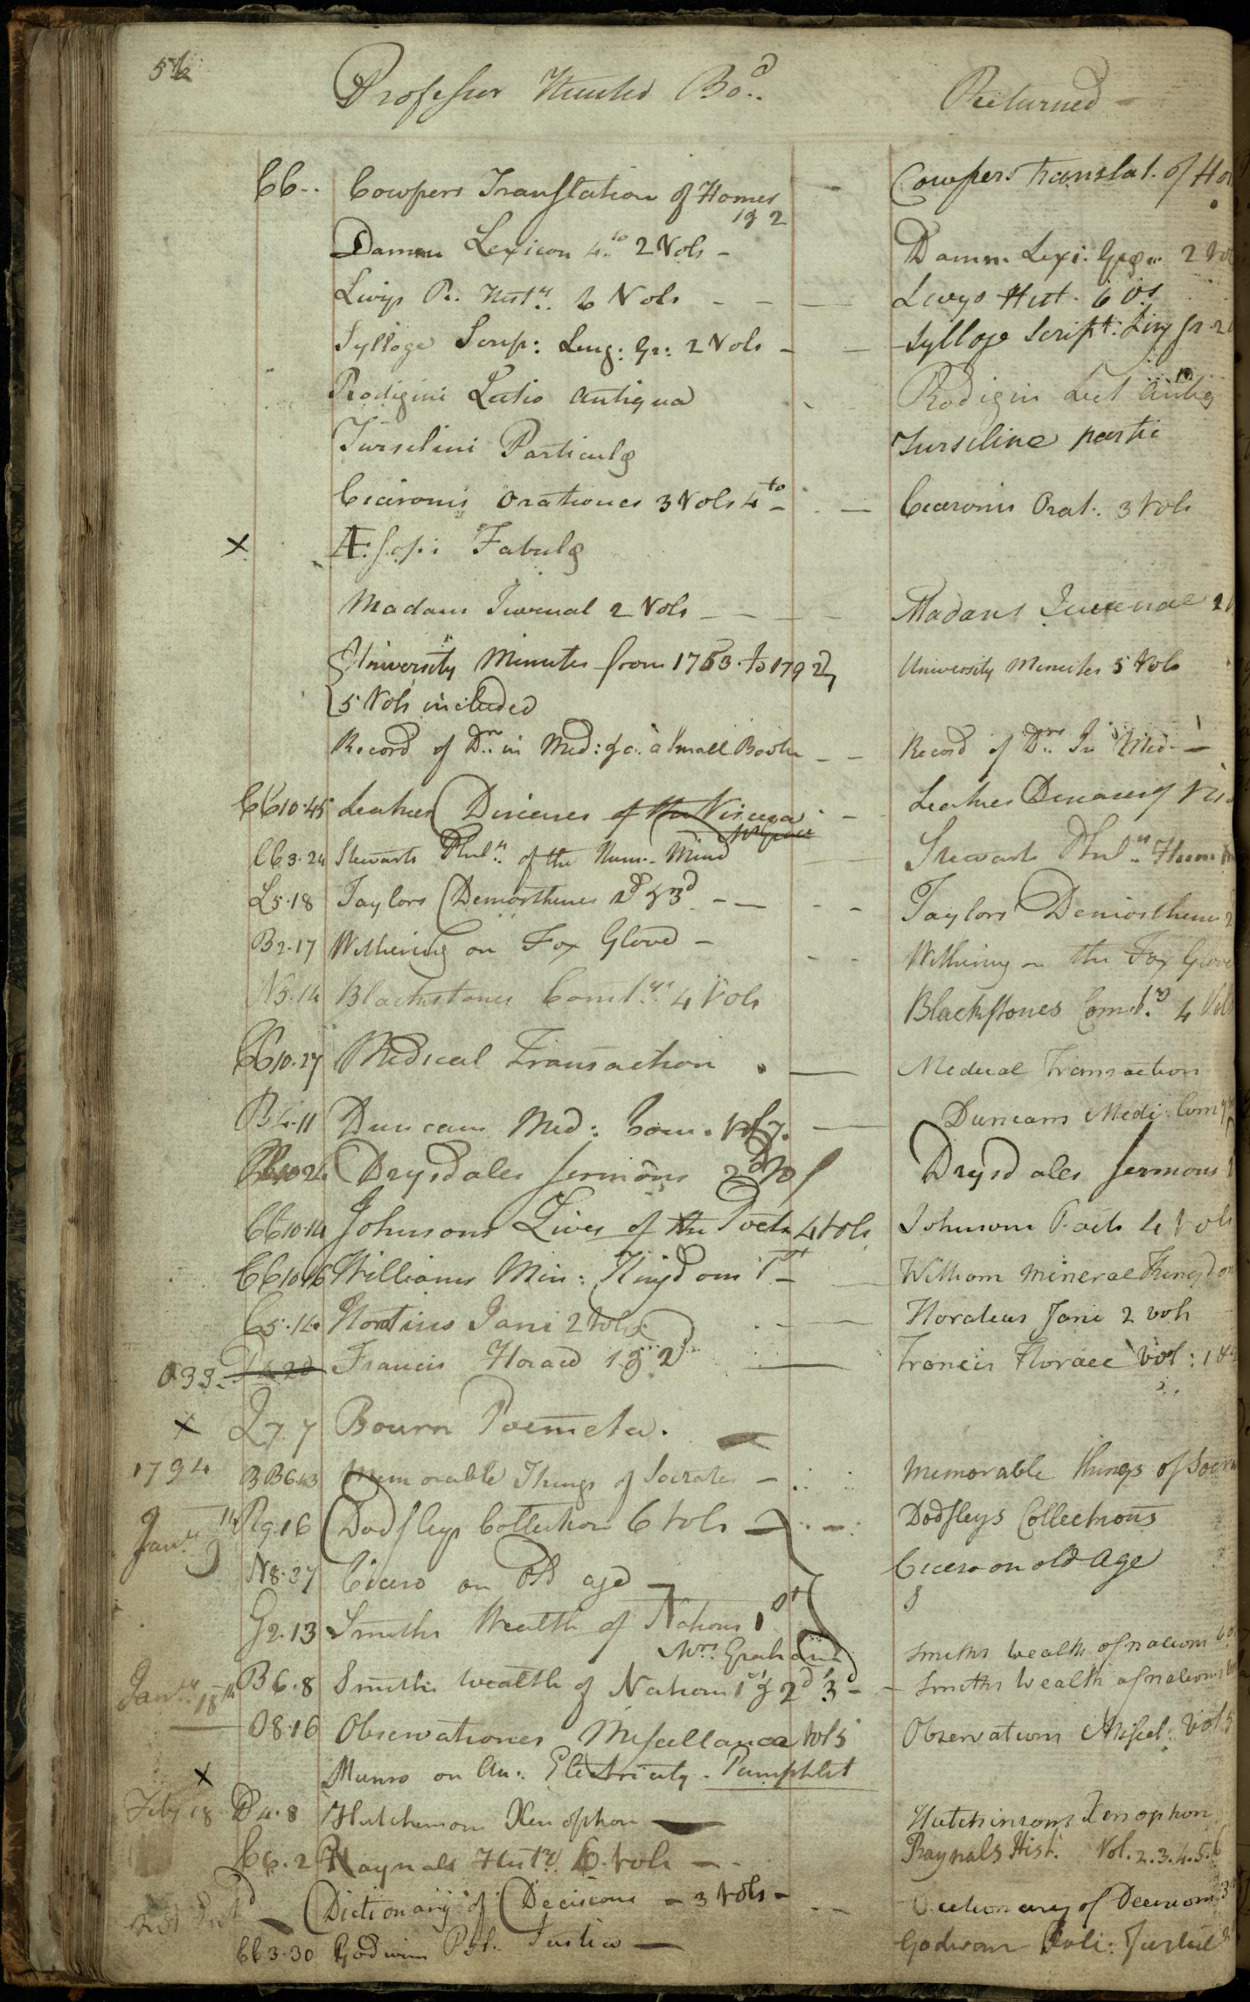 56
Professor Hunter Bo.d Returned -
CC.. Cowpers Translation of Homer - Cowpers Translat. of Ho
1 & 2
Damm Lexicon 4.to 2 Vols - Damm. Lexi: Græ.. 2 Vo
Livys Ro. Hist.y 6 Vols - - - Livys Hist. 6 Vs
Sylloge Scrip: Ling: Gr: 2 Vols - - Sylloge Script: Ling Gr. 2
Rodigini Lectio Antiqua Rodigin Lect Antiq
Turselini Particulæ Turseline partic
Ciceronis Orationes 3 Vols 4to - - Ciceronis Orat. 3 Vols
x Æsopi Fabulæ
Madans Juvenal 2 Vols - - - - Madans Juvenal 2
University Minutes from 1763 to 1792, University Minutes 5 Vols
5 Vols included
Record of Drs. in Med: &c. a Small Book - - Record of Drs. In Med. -
CC10.45 Leakes Diseases of the Viscera - Leakes Diseases of Vis
CC3.24 Stewarts Phil.y of the Hum. Mind Stewarts Phil.y Hum
L5.18 Taylors Demosthenes 2d & 3d - - - - Taylors Demosthenes 2
B2.17 Withering on Fox Glove - - - Withering on the Fox Glove
N5.14 Blackstones Com.ys 4 Vols Blackstones Com.ys 4 Vols
CC10.27 Medical Transaction . - Medical Transaction
B4.11 Duncans Med: Com. Vol 7. - Duncans Medi: Com
10.24 Drysdales Sermons 2d Vol Drysdales Sermons
CC10.14 Johnsons Lives of the Poets 4 Vols Johnsons Poets 4 Vols
CC10.16 Williams Min: Kingdom 1st - - William Mineral Kingdom
C5.14 Horatius Jani 2 Vols - - Horateus Jani 2 vols
O33. Francis Horace 1 & 2d - Francis Horace Vol: 1 &
x Q7.7 Bourn Poemeta. -
1794 BBC.43 Memorable Things of Socrates - Memorable things of Socra
Jan.y 9 R9.16 Dodsleys Collection 6 Vols - - Dodsleys Collections
N8.37 Cicero on Old age - Cicero on old Age
G2.13 Smiths Wealth of Nations 1st Smiths Wealth of nations
Mrs. Graham
Jan.y 18th B6.8 Smiths Wealth of Nations 1st & 2d 3d - - Smiths Wealth of nations
O8.16 Observationes Miscellanea Vol 5 Observations Miscel: Vol 5
x Munro on An: Electricity. Pamphlet
Feby 18 D4.8 Hutchinson Xenophon - Hutchinsons Xenophon
C6.2 Raynals Hist.y 6 Vols - Raynals Hist. Vol. 2.3.4.5.6
Dictionary of Decisions - 3 Vols - - - Dictionary of Decisions 3
CC3.30 Godwins Pol. Justice - Godwins Poli: Justice